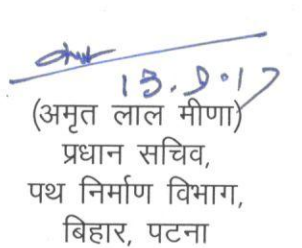 13.9.17
(अमृत लाल मीणा)
प्रधान सचिव,
पथ निर्माण विभाग,
बिहार, पटना